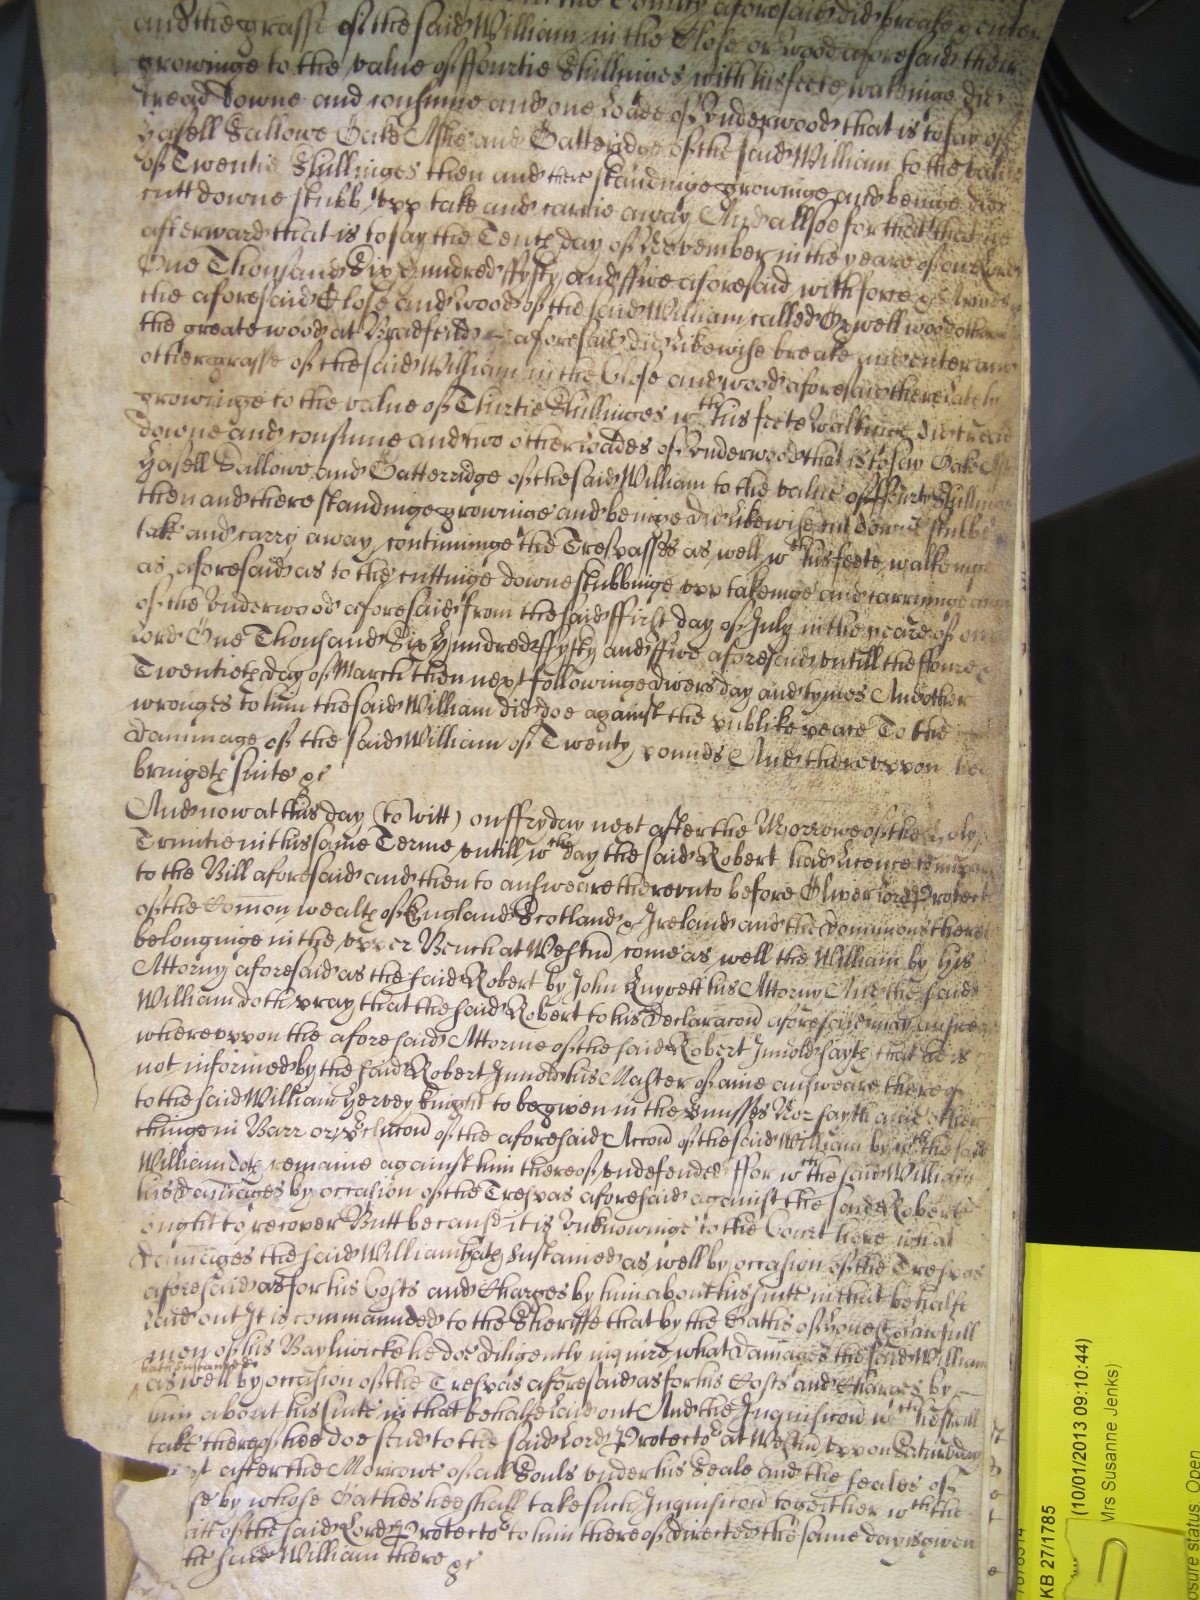 in the County aforesaid did breake & enter
and the grasse of the said William in the Close or Wood aforesaid then
growinge to the value of ffourtie Shillinges with his feete walkinge did
tread downe and consume and one Loade of Underwood that is to say of
Hasell Sallowe Oake Ashe and Gatteridge of the said William to the value
of Twentie Shillinges then and there standinge growinge and beinge did
cutt downe stubb upp take and carrie away And allsoe for that that hee
afterward that is to say the Tenth day of November in the yeare of our Lord
One Thousand Six Hundred ffyfty and ffive aforesaid with force & Armes
the aforesaid Close and Wood of the said William called Orwell wood otherwise
the greate wood at Bradfeild aforesaid did likewise breake and enter and
other grasse of the said William in the Close and wood aforesaid there lately
growinge to the value of Thirtie Shillinges wth his feete walkinge did tread
downe and consume and two other Loades of Underwood that is to say Oake Ashe
Hasell Sallowe and Gatterridge of the said William to the value of ffourty Shillinges
then and there standinge growinge and beinge did likewise cut downe stubb
take and carry away continuinge the Trespasses as well wth his feete walkeinge
as aforesaid as to the cuttinge downe stubbinge upp takeinge and carringe away
of the Underwood aforesaid from the said ffirst day of July in the yeare of our
Lord One Thousand Six Hundred ffyfty and ffive aforesaid untill the ffoure &
Twentieth day of March then next followinge divers day and tymes And other
wronges to him the said William did doe against the publike peace To the
dammage of the said William of Twenty pounds And thereuppon hee
bringeth suite &c
And now at this day (to witt) on ffryday next after the Morrowe of the Holy
Trinitie in this same Terme untill wch day the said Robert had licence to imparle
to the Bill aforesaid and then to answeare thereunto before Oliver Lord Protector
of the Comon wealth of England Scotland & Ireland and the dominions thereto
belonginge in the upper Bench at Westmr come as well the William by his
Attorny aforesaid as the said Robert by John Knyvett his Attorny And the said
William doth pray that the said Robert to his declaracon aforesaid may answere
whereuppon the aforesaid Attornie of the said Robert Innold sayth that he is
not informed by the said Robert Innold his Master of anie answeare thereof
to the said William Hervey Knight to be given in the premisses Nor sayth anie other
thinge in Barr or preclucon of the aforesaid Accon of the said William by wch the said
William doth remaine against him thereof undefended ffor wch the said William
his damages by occasion of the Trespas aforesaid against the said Robert
ought to recover Butt because it is unknowinge to the Court here what
damages the said William hath sustained as well by occasion of the Trespas
aforesaid as for his Costs and Charges by him about his suite in that behalfe
laid out It is commaunded to the Sheriffe that by the Oathes of honest & lawfull
men of his Bayliwicke he doe diligently inquire what damages the said William
hath sustained
as well by occasion of the Trespas aforesaid as for his Costs and Charges by
him about his suite in that behalfe laid out And the Inquisicon wch he shall
take thereof hee doe send to the said Lord Protector at Westmr uppon Saturday
next after the Morrowe of all Souls under his Seale and the seales of
se by whose Oathes hee shall take such Inquisicon together wth the
itt of the said Lord Protector to him thereof directed the same day is given
the said William there &c
KB 27/1785
(10/01/2013 09:10:44)
Mrs Susanne Jenks)
osure status: Open